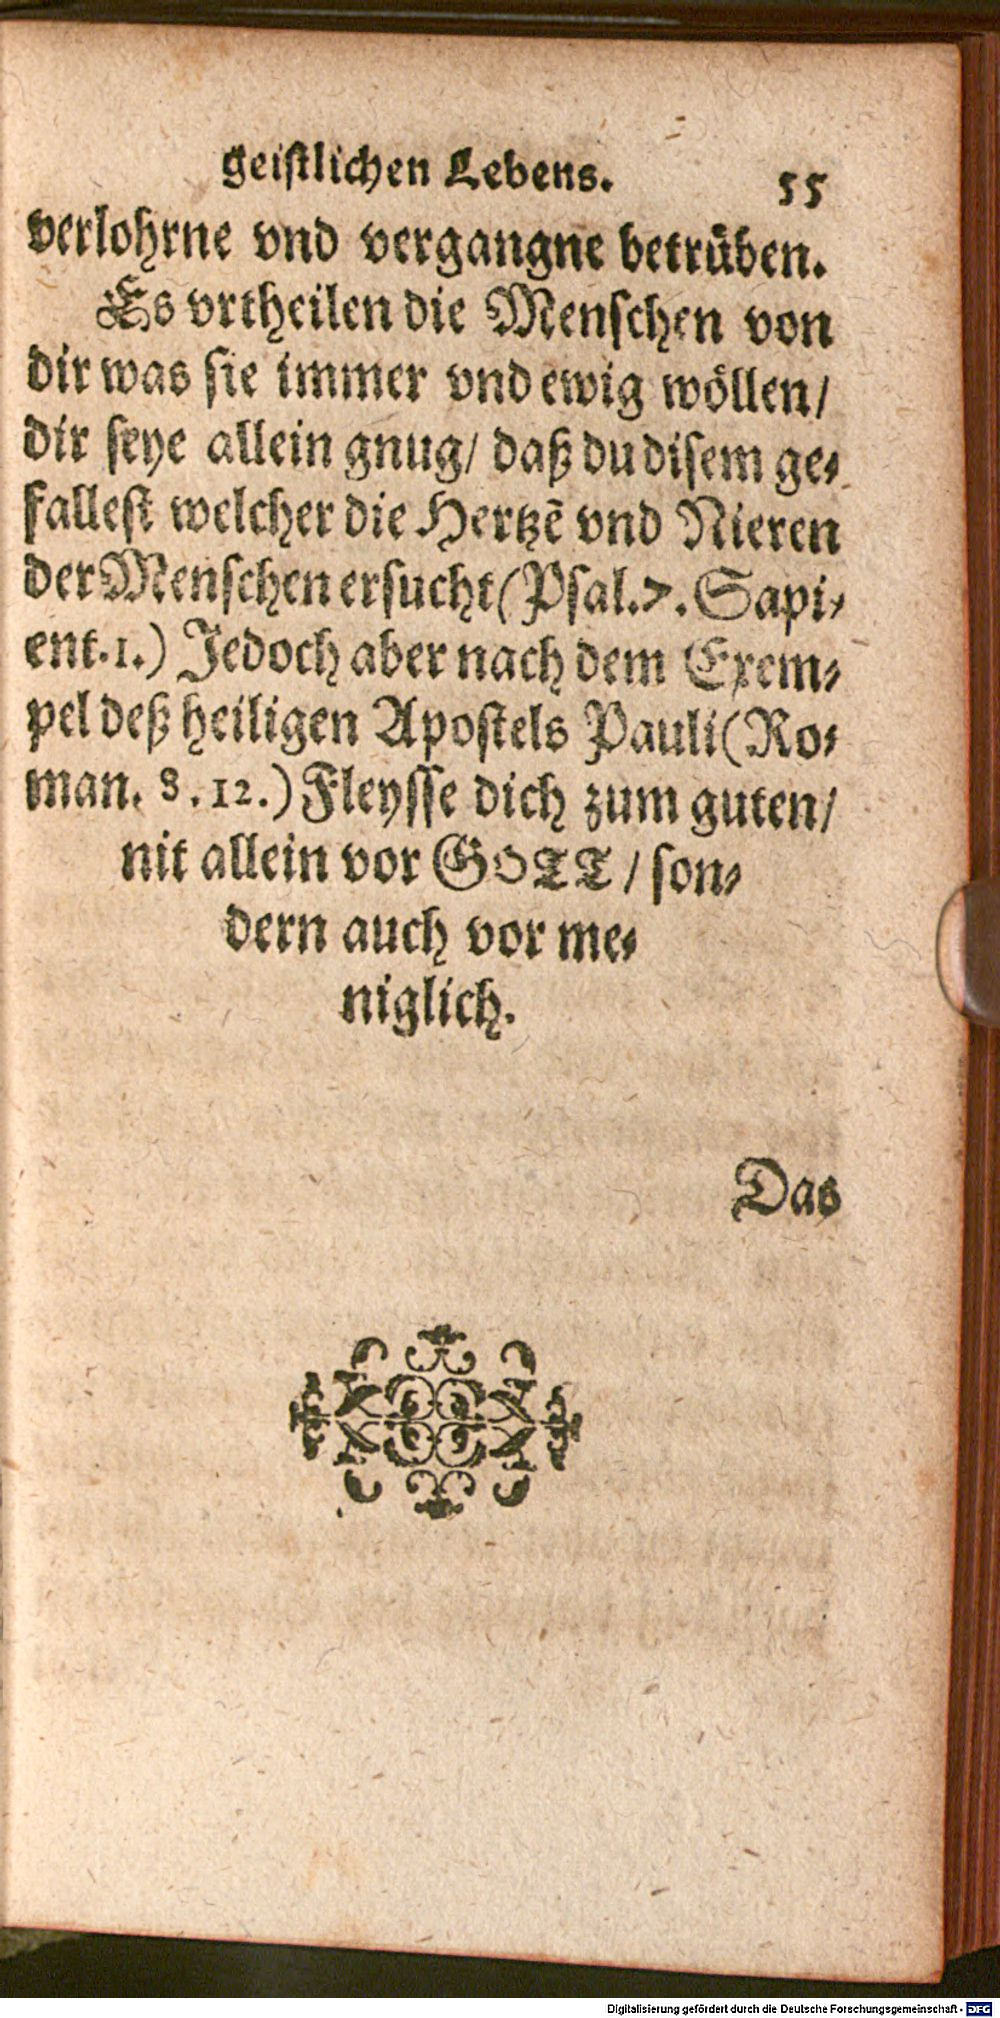 geistlichen Lebens. 55
verlohrne vnd vergangne betrüben.
Es vrtheilen die Menschen von
dir was sie immer vnd ewig wöllen/
dir seye allein gnug/ daß du disem ge-
fallest welcher die Hertzẽ vnd Nieren
der Menschen ersucht (Psal. 7. Sapi-
ent. 1.) Jedoch aber nach dem Exem-
pel deß heiligen Apostels Pauli (Ro-
man. 8. 12.) Fleysse dich zum guten/
nit allein vor GOTT/ son-
dern auch vor me-
niglich.
Das
Digitalisierung gefördert durch die Deutsche Forschungsgemeinschaft - DFG